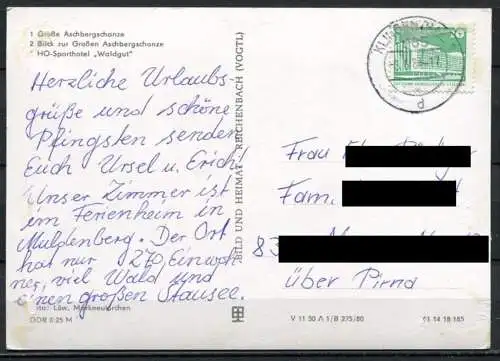 1 Große Aschbergschanze
2 Blick zur Großen Aschbergschanze
HO-Sporthotel „Waldgut"
Herzliche Urlaubs-
grüße und schöne
Pfingsten senden
Euch Ursel u. Erich!
Unser Zimmer ist
im Ferienheim in
Muldenberg. Der Ort
hat nur 270 Einwoh
ner, viel Wald und
einen großen Stausee.
Löw, Markneukirchen
DDR 0.25 M
BILD UND HEIMAT REICHENBACH (VOGTL)
V 11 50 A 1/B 275/80
01 14 18 185
Frau
Fam.
83
über Pirna